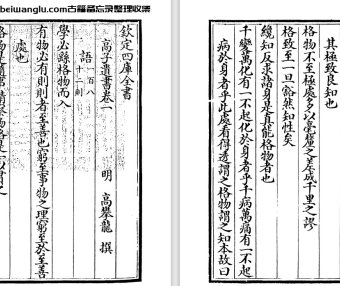 beiwanglu.com古籍备忘录整理收集
欽定四庫全書
高子遺書卷一
明 高攀龍 撰
語一百八十二則
學必繇格物而入
有物必有則則者至善也窮至事物之理窮至於至善
處也
格物是隨事精察物格是一以貫之
其極致良知也
格物不至極處多以毫釐之差成千里之謬
格致至一旦豁然知性矣
纔知反求諸身是真能格物者也
千變萬化有一不起化於身者乎千病萬痛有一不起
病於身者乎此處看得透謂之格物謂之知本故曰